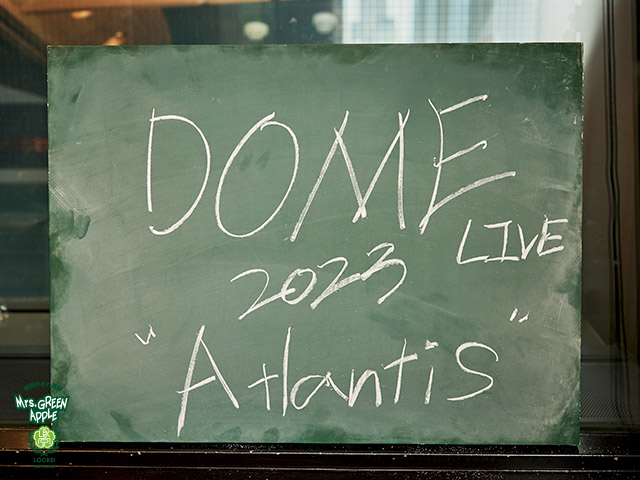 DOME
LIVE
2023
"Atlantis"
Mrs. GREEN
APPLE
LOCKS!